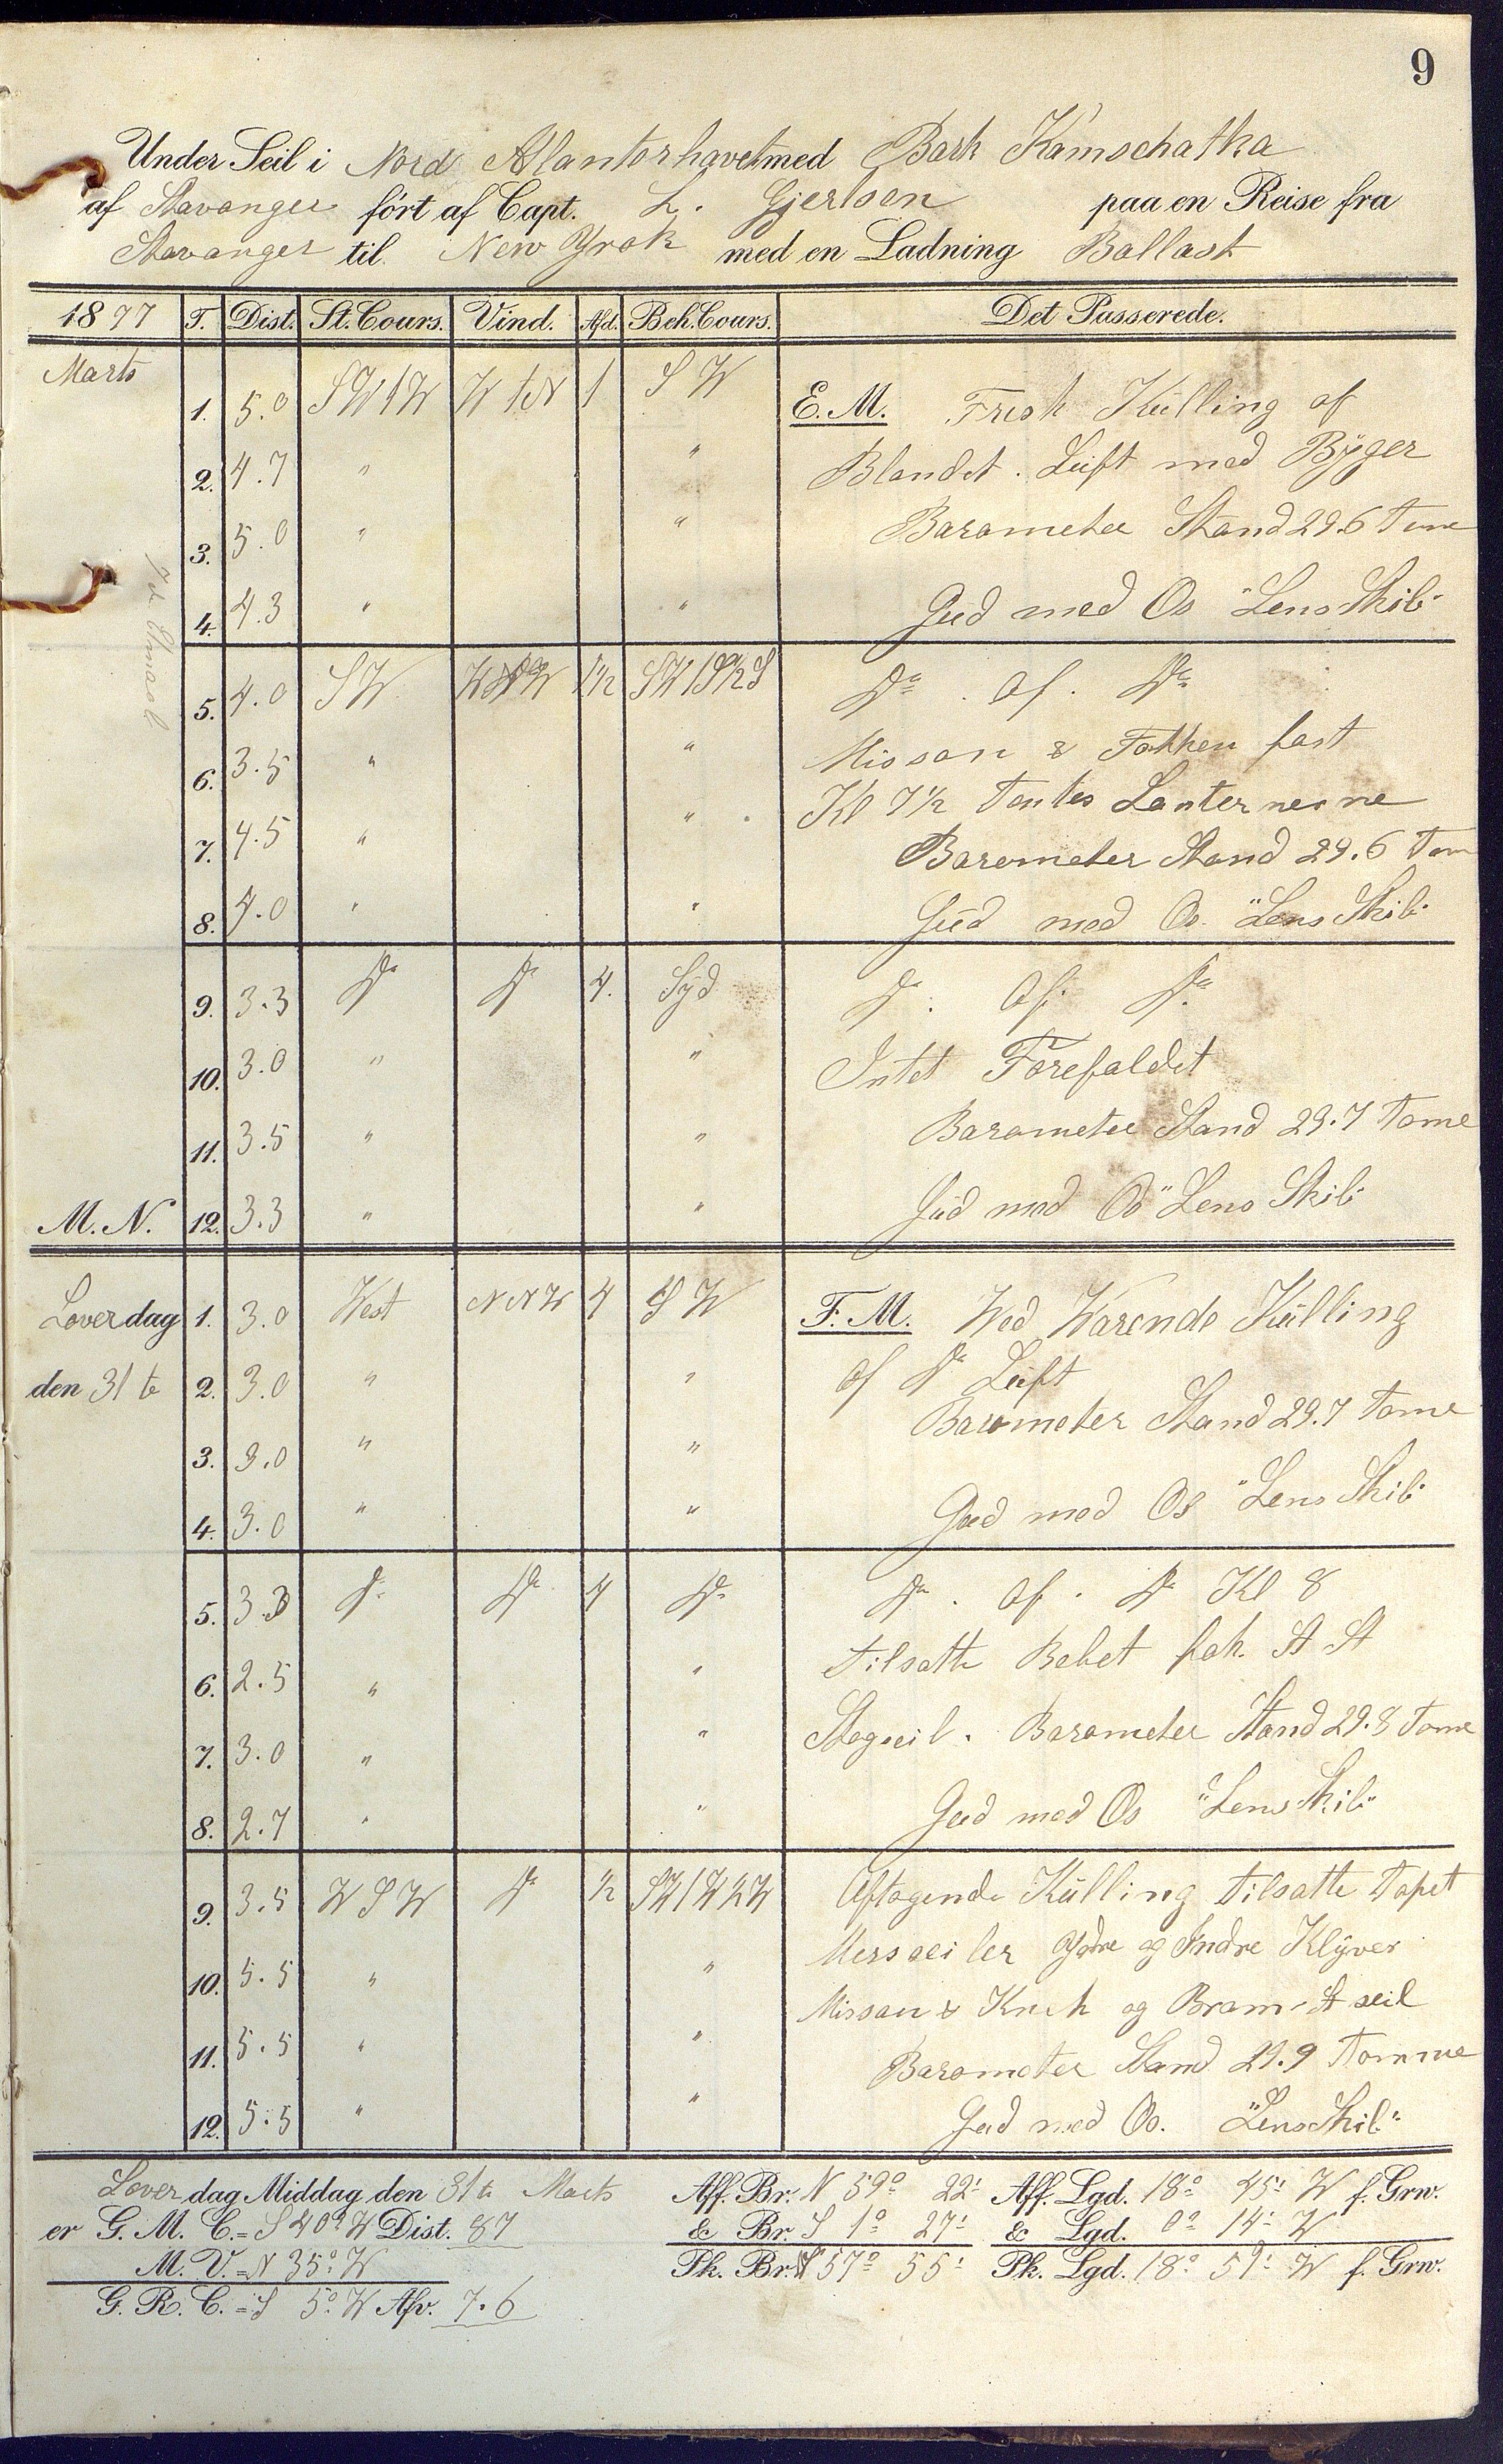 9
Under Seil i Nord Atlanterhavet med Bark Kamschatka
af Stavanger ført af Capt. L. Gjertsen paa en Reise fra
Stavanger til New Yrok med en Ladning Ballast
1877 T. Dist. St. Cours. Vind. Afd. Beh. Cours. Det Passerede.
Marts
1. 5.0 SWtW WtN 1 SW E.M. Frisk Külling af
2. 4.7 " " Blandet Lüft med Byger
3. 5.0 " " Barometer Stand 29.6 Tome
4. 4.3 " " Gud med Os "Lens Skib"
5. 4.0 SW 1½ Do. af. Do.
6. 3.5 " " Missan & Fokken fast
7. 4.5 " " Kl 7½ Tentes Lanternerne
Barometer Stand 29.6 Tom
8. 4.0 " " Gud med Os "Lens Skib"
9. 3.3 Do Do 4. Syd Do. Af. Do.
10. 3.0 " " Intet Forefaldet
11. 3.5 " " Barometer Stand 29.7 Tome
M.N. 12. 3.3 " " Gud med Os "Lens Skib"
Loverdag 1. 3.0 West NNW 4 SW F.M. Wed Warende Külling
den 31te 2. 3.0 " " af Do Lüft
Barometer Stand 29.7 Tome
3. 3.0 " "
4. 3.0 " " Gud med Os "Lens Skib"
5. 3.3 Do. Do. 4 Do. Do. af. Do Kl 8
6. 2.5 " " tilsatte Bebet St St
7. 3.0 " " Stagseil. Barometer Stand 29.8 Tome
8. 2.7 " " Gud med Os "Lens Skib"
9. 3.5 WSW Do ½ SWtW½W Aftagende Külling tilsatte Topet
10. 5.5 " " Mersseiler Ydre og Indre Klyver
11. 5.5 " " Missan & og Bram-St seil
Barometer Stand 29.9 Tomme
12. 5.5 " " Gud med Os. "Lens Skib"
Loverdag Middag den 31te Marts Aff. Br. N 59° 22' Aff. Lgd. 18° 45' W f. Grw.
er G. M. C. = S 40° W Dist. 87 & Br. S 1° 27' & Lgd. 0° 14' W
M. V. = N 35° W Pk. Br. N 57° 55' Pk. Lgd. 18° 59' W f. Grw.
G. R. C. = S 5° W Afv. 7.6